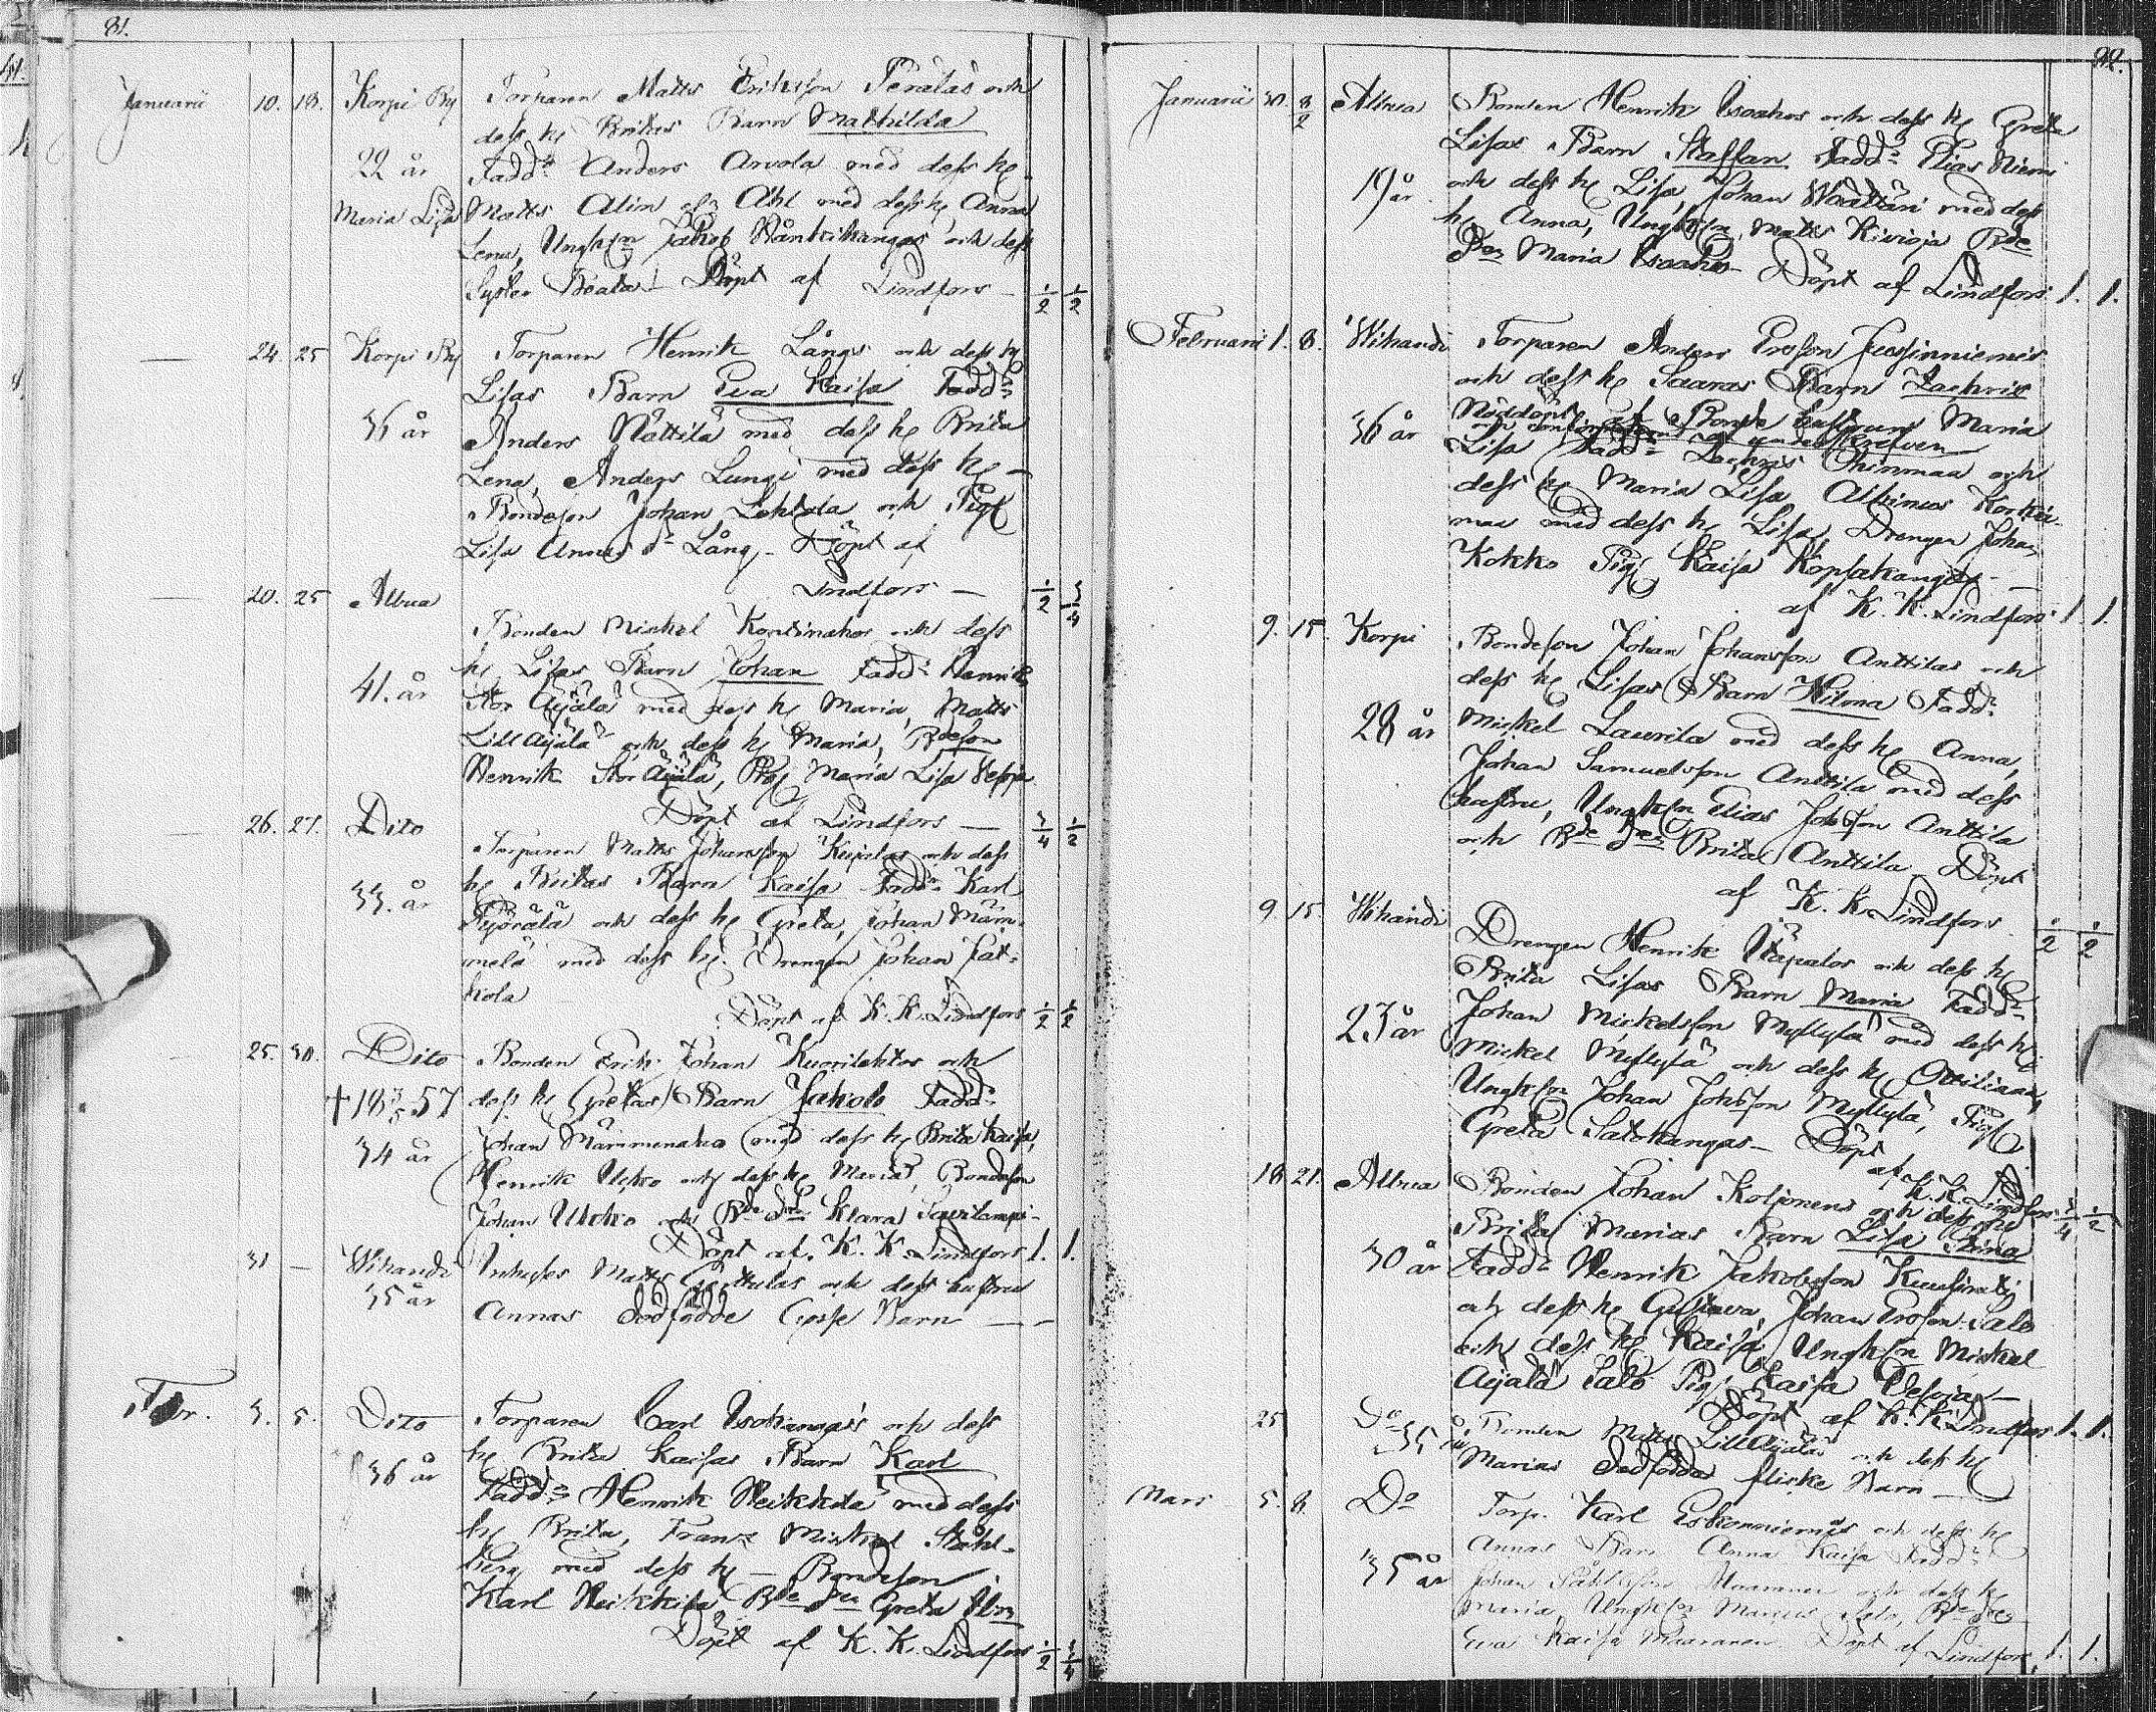 81.
Januarii 10. 18. Korpi By Torparen Matts Eriksson Peralas och
dess h. Britas Barn Mathilda
22 år Fadd: Anders Arvola med dess h.
Maria Lisa Matts Alin Ahl med dess h. Anna
Lena, Jakob och dess
Syster Beata Döpt af Lindfors 1/2 1/2
24. 25 Korpi By Torparen Henrik Långs och dess h
Lisas Barn Eva Kaisa Fadd:
36 år Anders Nättilä med dess h. Brita
Lena, Anders Lungi med dess h.
Bondeson Johan Lehtola och Pig.
Lisa Långs Döpt af
Lindfors 1/2 3/4
20. 25 Albua
Bonden Mickel Kontinahos och dess
h. Lisas Barn Johan Fadd: Henrik
41. år Stor Äijälä med dess h. Maria, Matts
Lill Äijälä och dess h. Maria, Bdeson
Henrik Stor Äijälä, Maria Lisa Vesoja
Döpt af Lindfors 3/4 1/2
26. 27. Dito
Torparen Matts Johansson och dess
h. Britas Barn Kaisa Fadd: Karl
33. år Pyörälä och dess h. Greta, Johan Mäm-
melä med dess h. Drengen Johan Jat-
kola
Döpt af K. K. Lindfors 1/2 1/2
25. 30. Dito Bonden Erik Johan Kuorilehtos och
† 18 3/5 57 dess h. Gretas Barn Jakob Fadd:
34 år Johan Mämmenaho med dess h. Brita Kaisa,
Henrik Ukko och dess h. Maria, Bondeson
Johan Ukko och Bde Dr Klara Savilampi
Döpt af K. K. Lindfors 1. 1.
31 — Wihandi Inhyses Matts och dess hustru
35 år Annas dödfödde Gosse Barn
Febr. 3. 5. Dito Torparen Carl Isokangas's och dess
36 år h. Brita Kaisas Barn Karl
Fadd: Henrik Heikkilä med dess
h. Brita, Frans Mickel Ståhl-
berg med dess h. Bondeson
Karl Heikkilä Bde Dr Greta
Döpt af K. K. Lindfors 1/2 3/4
82.
Januarii 30. 8/2 Albua Bonden Henrik Isoahos och dess h. Greta
Lisas Barn Staffan Fadd: Elias Niemi
19 år och dess h. Lisa, Johan Wärttäri med dess
h. Anna, Matts Kivioja Bde
Dr Maria Isoaho Döpt af Lindfors 1. 1.
Februari 1. 8. Wihandi Torparen Anders Ersson Jussinniemis
och dess h. Saaras Barn Zachris
Nöddöpt af Bonde hustrun Maria
36 år Lisa Fadd: Zachris Ohinmaa och
dess h. Maria Lisa, Albinus Korkia-
maa med dess h. Lisa, Drengen Johan
Kokko Pig. Kaisa Kopsakangas
af K. K. Lindfors 1 1.
9. 15. Korpi Bondeson Johan Johansson Anttilas och
dess h. Lisas Barn Hilma Fadd:
28 år Mickel Laurila med dess h. Anna,
Johan Samuelsson Anttila med dess
hustru, Elias Johsson Anttila
och Bde Dr Brita Anttila Döpt
af K. K. Lindfors 1/2 1/2
9. 15. Wihandi
Drengen Henrik och dess h.
Brita Lisas Barn Maria Fadd:
23 år Johan Mickelsson Myllylä med dess h.
Mickel Myllylä och dess h. Ottiliana,
Johan Johsson Myllylä, Pig.
Greta Salokangas Döpt
af K. K. Lindfors 3/4 1/2
18. 21. Albua Bonden Johan Koljonens och dess h.
Brita Marias Barn Lisa Stina
30 år Fadd: Henrik Jakobsson
och dess h. Gustava, Johan Ersson Salo
och dess h. Kaisa, Mickel
Äijälä Salo Pig. Kaisa Vesoja
Döpt af K. K. Lindfors 1. 1.
25 Do Bonden Matts Lill Äijäläs och dess h.
35 år Marias Dödfödda flicke Barn
Mars 5. 8. Do Torp. Karl Eskonniemis och dess h.
Annas Barn Anna Kaisa Fadd:
35 år Johan och dess h.
Maria, Marcus Salo, Bde Dr
Eva Kaisa Döpt af Lindfors 1. 1.